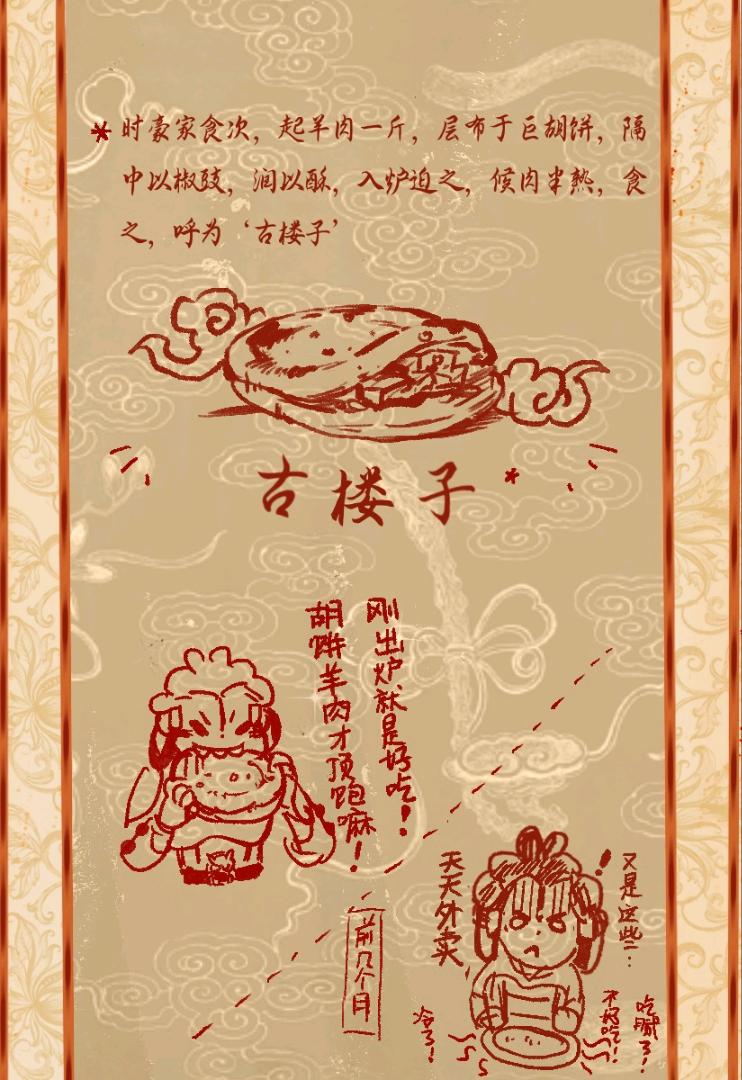 * 时豪家食次，起羊肉一斤，层布于巨胡饼，隔
中以椒豉，润以酥，入炉迫之，候肉半熟，食
之，呼为‘古楼子’
古楼子*
刚出炉就是好吃！
胡饼羊肉才顶饱嘛！
前几个月
又是这些…
天天外卖，
吃腻了！
不好吃！
冷了！